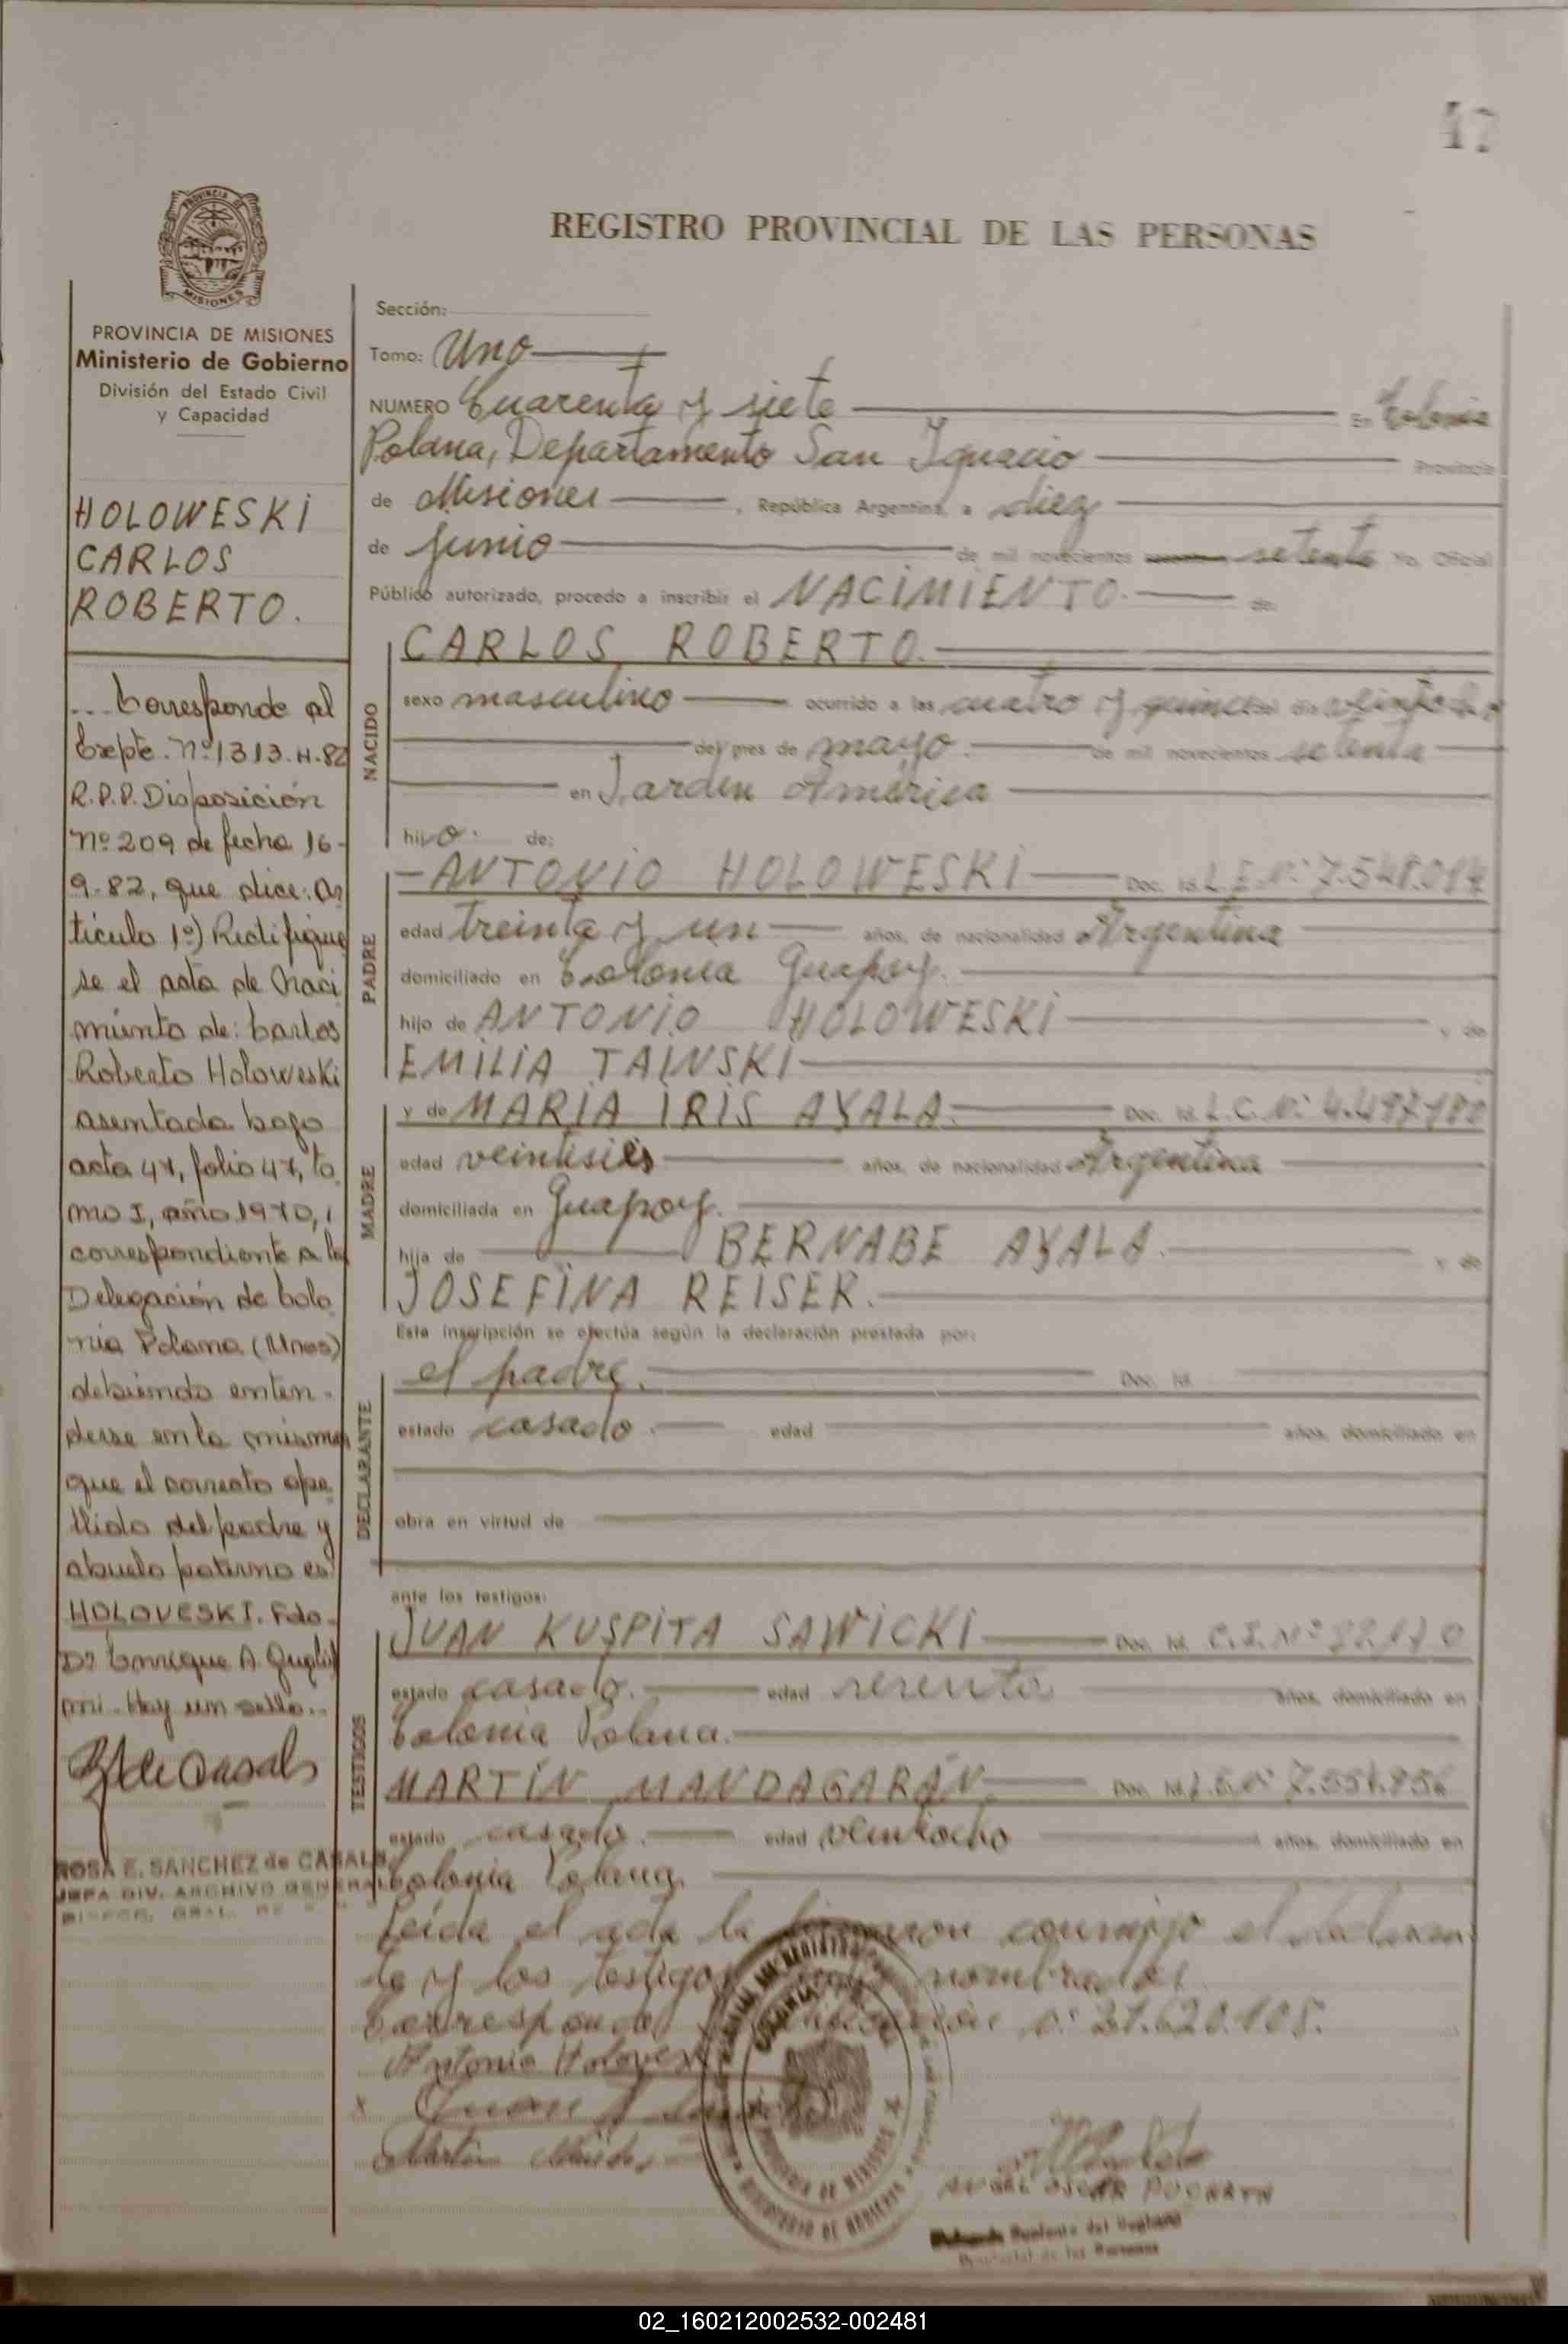 47
REGISTRO PROVINCIAL DE LAS PERSONAS
PROVINCIA DE
MISIONES
PROVINCIA DE MISIONES
Ministerio de Gobierno
División del Estado Civil
y Capacidad
HOLOWESKI
CARLOS
ROBERTO.
... Corresponde al
Expte. Nº 1313-H-82
R.P.P. Disposición
Nº 209 de fecha 16-
9-82, que dice: Ar
tículo 1º) Rectifique
se el acta de Naci
miento de: Carlos
Roberto Holoweski
asentada bajo
acta 47, folio 47, to
mo I, año 1970,
correspondiente a la
Delegación de Colo
nia Polana (Mnes)
debiendo enten-
derse en la misma
que el correcto ape
llido del padre y
abuelo paterno es:
HOLOVESKI. Fdo.
Dr Enrique A.
Hay un sello..
ROSA E. SANCHEZ de CASALS
JEFA DIV. ARCHIVO GENERAL
Sección:
Tomo: Uno
NUMERO Cuarenta y siete En Colonia
Polana, Departamento San Ignacio Provincia
de Misiones, República Argentina, a diez
de junio de mil novecientos setenta Yo, Oficial
Público autorizado, procedo a inscribir el NACIMIENTO. de:
NACIDO
CARLOS ROBERTO.
sexo masculino ocurrido a las cuatro y quince del día
del mes de mayo. de mil novecientos setenta
en Jardín América
hijo. de:
PADRE
-ANTONIO HOLOWESKI Doc. Id. L.E.Nº 7.548.014
edad treinta y un años, de nacionalidad Argentina
domiciliado en Colonia Guapoy.
hijo de ANTONIO HOLOWESKI y de
EMILIA TAINSKI
MADRE
y de MARIA IRIS AYALA. Doc. Id. L.C.Nº
edad veintiseis años, de nacionalidad Argentina
domiciliada en Guapoy.
hija de BERNABE AYALA. y de
JOSEFINA REISER.
Esta inscripción se efectúa según la declaración prestada por:
DECLARANTE
el padre. Doc. Id.
estado casado. edad años, domiciliado en
obra en virtud de
ante los testigos:
TESTIGOS
JUAN KUSPITA SAWICKI Doc. Id. C.I.Nº
estado casado. edad sesenta años, domiciliado en
Colonia Polana.
MARTIN MANDAGARÁN Doc. Id. L.E.Nº 7.554.856
estado casado. edad veintiocho años, domiciliado en
Colonia Polana.
Leída el acta la firmaron conmigo el declaran
te y los testigos nombrados.
Corresponde 21.620.108.
Antonio Holoveski
Juan
Martin
ANGEL OSCAR
Provincial de las Personas
02_160212002532-002481